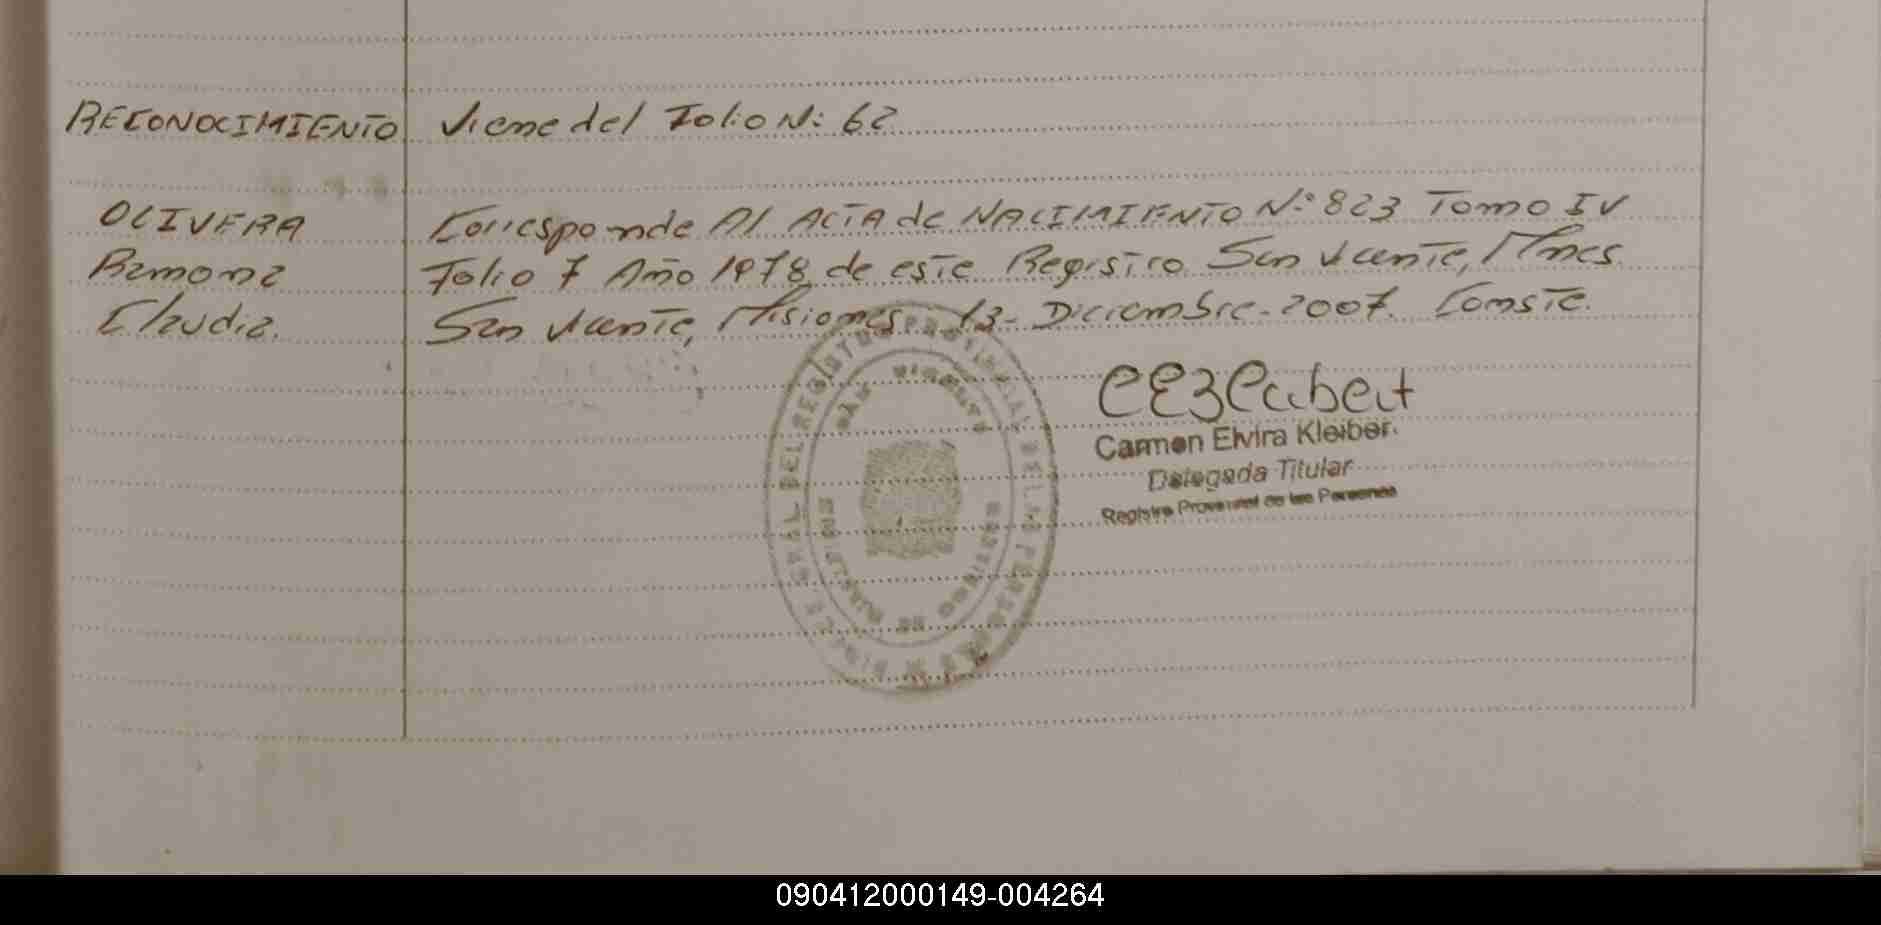 RECONOCIMIENTO Viene del Folio N: 62
OLIVERA Corresponde Al ACTA de NACIMIENTO N:° 823 Tomo IV
Ramona Folio 7 Año 1978 de este Registro San Vicente, Mnes
Claudia. San Vicente, Misiones 13- Diciembre-2007. Conste.
Carmen Elvira Kleiber
Delegada Titular
Registro Provincial de las Personas
REGISTRO PROVINCIAL DE LAS PERSONAS
SAN VICENTE
090412000149-004264